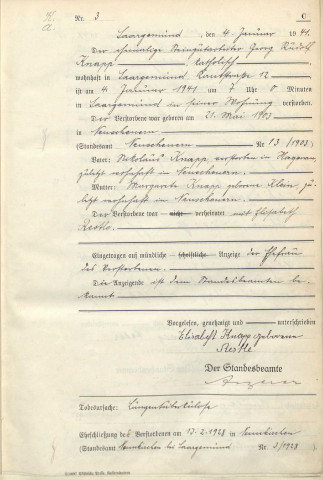 Nr. 3 C
Saargemünd, den 4. Januar 1941.
Der ehemalige Steingutarbeiter Georg Rudolf
Knapp, katholisch
wohnhaft in Saargemünd Rautstraße 12
ist am 4. Januar 1941 um 7 Uhr 0 Minuten
in Saargemünd in seiner Wohnung verstorben.
Der Verstorbene war geboren am 21. Mai 1903
in Neuscheuern
(Standesamt Neuscheuern Nr 13/1903)
Vater: Nikolaus Knapp verstorben in Hagenau
zuletzt wohnhaft in Neuscheuern.
Mutter: Margareta Knapp geborene Klein, zu-
letzt wohnhaft in Neuscheuern.
Der Verstorbene war nicht verheiratet mit Elisabeth
Restle.
Eingetragen auf mündliche schriftliche Anzeige der Ehefrau
des Verstorbenen.
Die Anzeigende ist dem Standesbeamten be-
kannt.
Vorgelesen, genehmigt und unterschrieben
Elisabeth Knapp geborene
Restle
Der Standesbeamte
Todesursache: Lungentuberkulose
Eheschließung des Verstorbenen am 17.2.1928 in
(Standesamt bei Saargemünd Nr. 3/1928